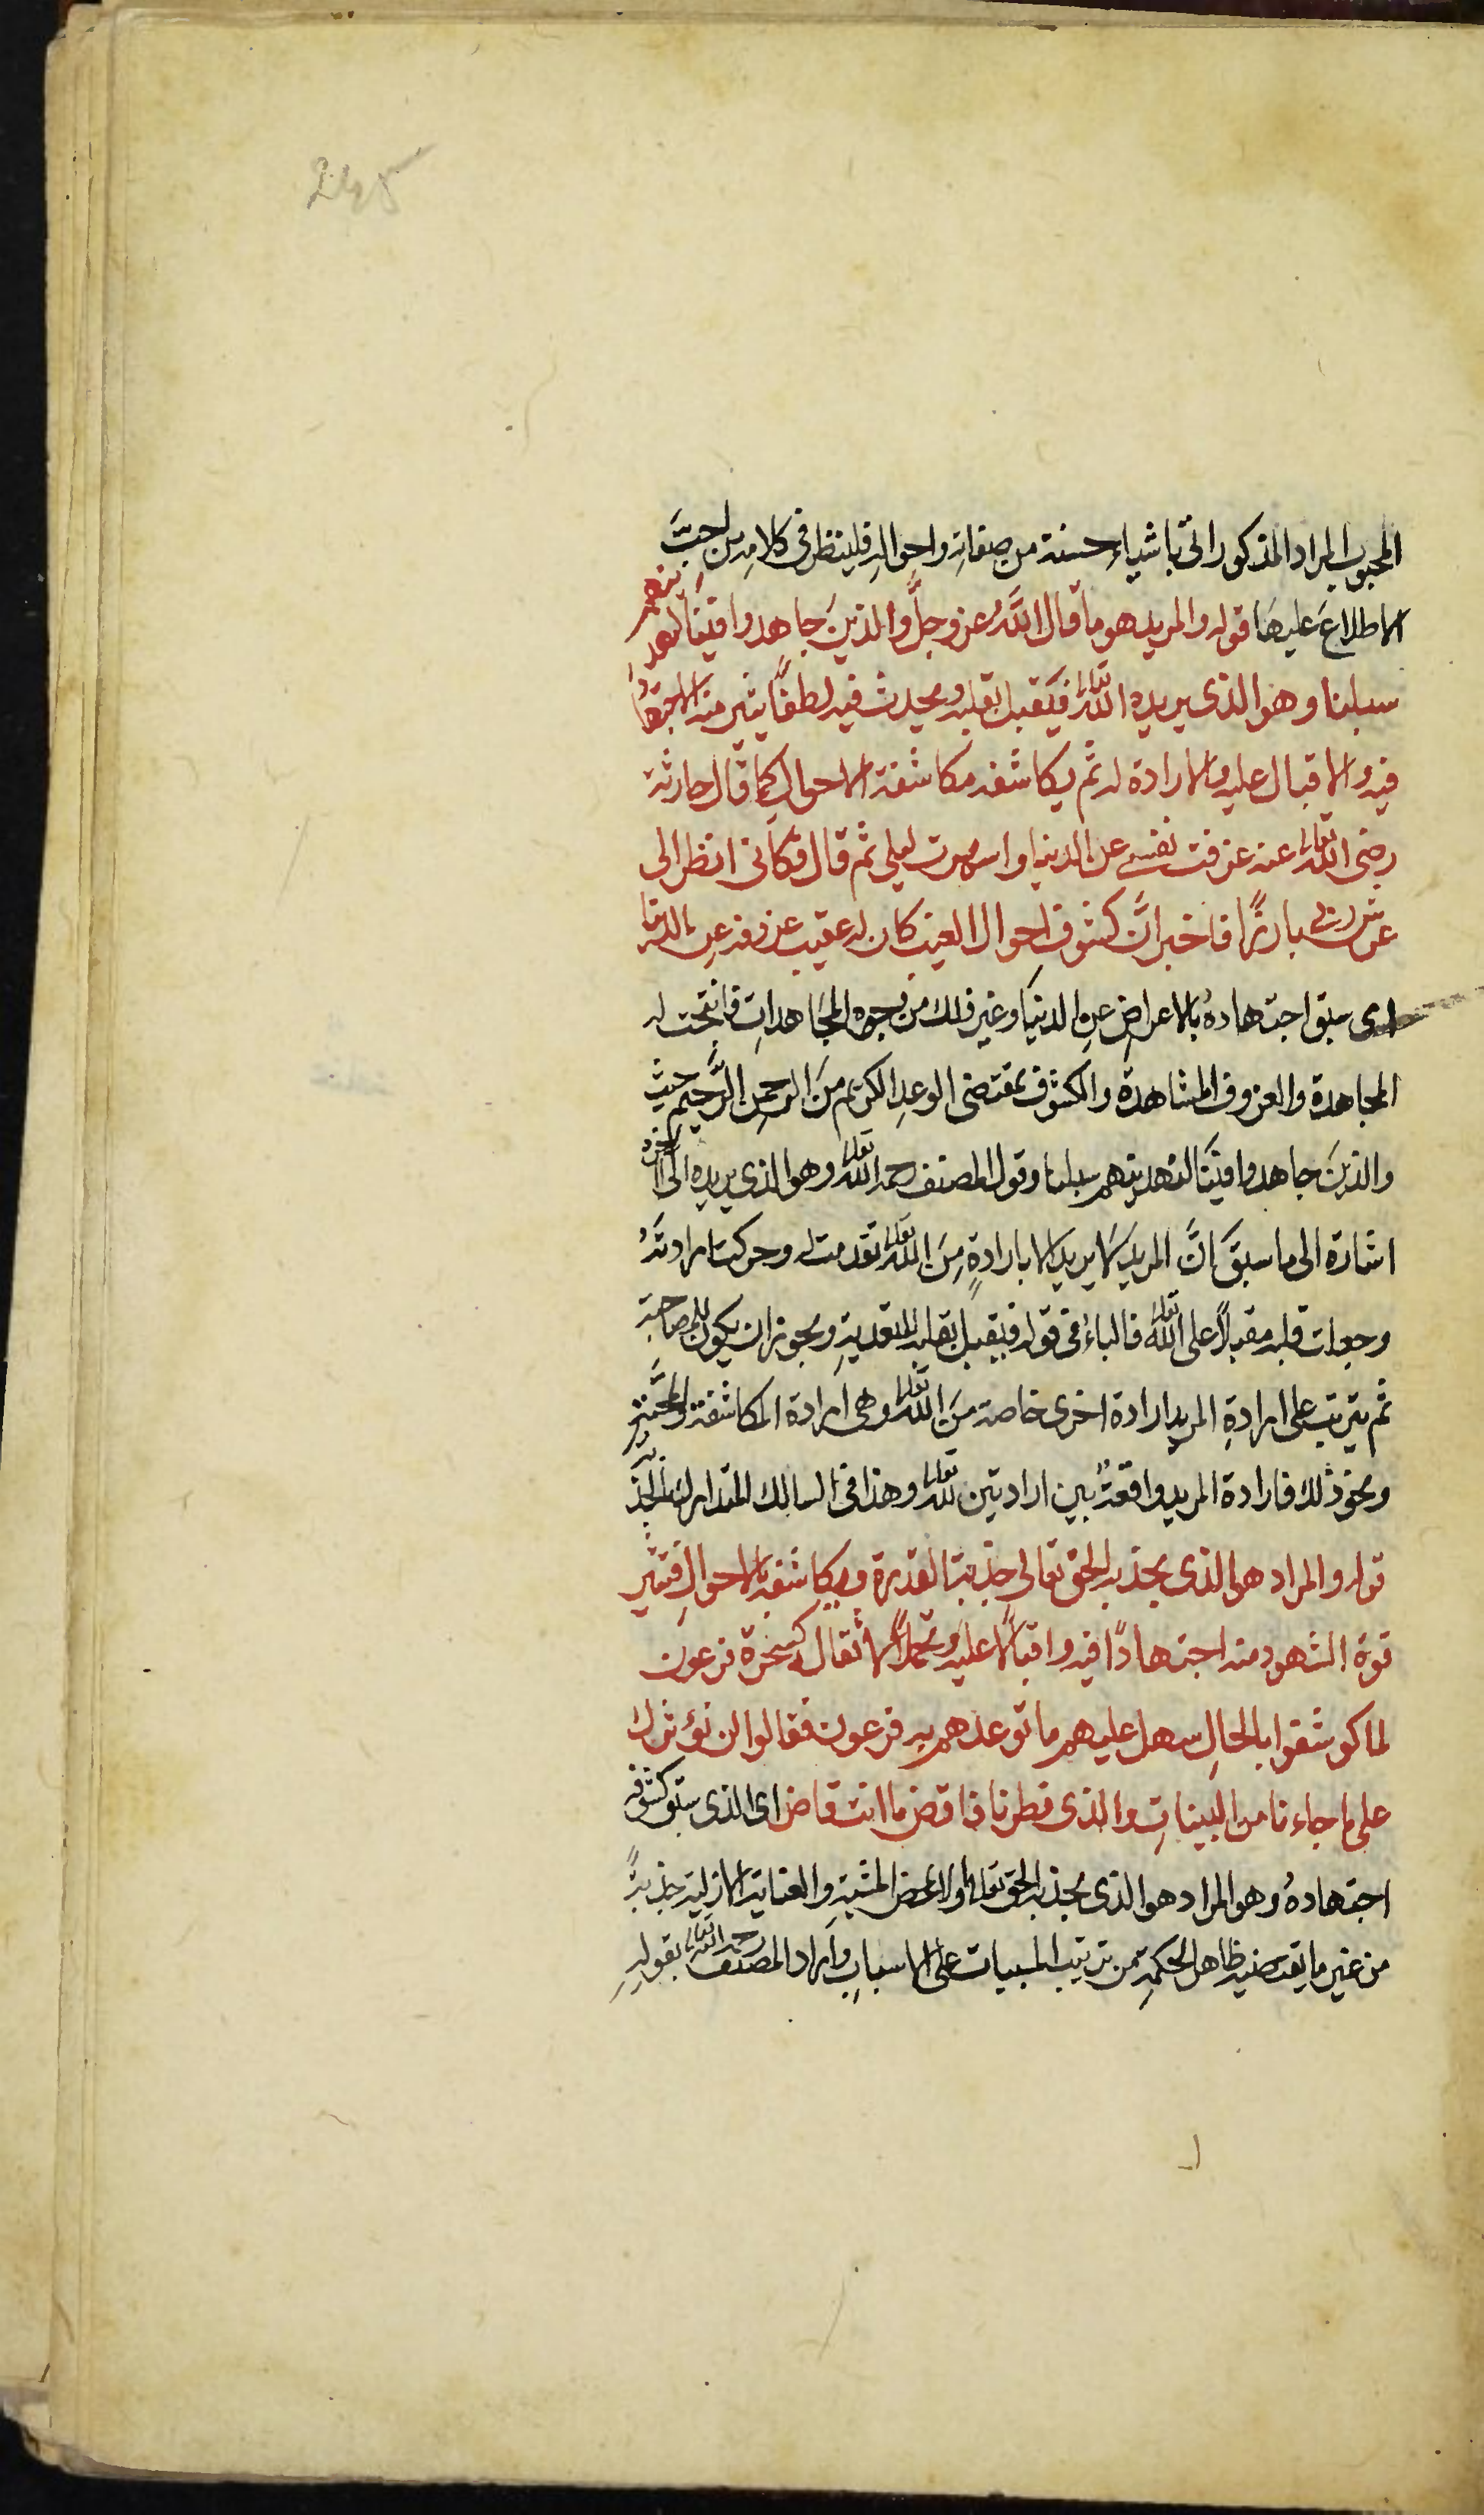 245
المحبوب المراد المذكور اتى باشياء حسنة من صفاته واحواله فلينظر فى كلامه من احبّ
الاطلاع عليها قوله والمريد هو ما قال الله عز وجلّ والذين جاهدوا فينا لنهدينهم
سبلنا وهو الذى يريده الله تعالى فيقبل بقلبه ويحدث فيه لطفًا يثير منه الاجتهاد
فيه والاقبال عليه والارادة له ثم يكاشفه مكاشفة الاحوال كما قال حارثة
رضى الله تعالى عنه عزفت نفسى عن الدنيا واسهرت ليلى ثم قال فكانى انظر الى
عرش ربى بارزًا فاخبر انّ كشوف احوال الغيب كان له عقيب عزوفه عن الدنيا
اى سبق اجتهادهُ بالاعراض عن الدنيا وغير ذلك من وجوه المجاهداتِ فانتجت له
المجاهدة والعزوف المشاهدة والكشوف بمقتضى الوعد الكريم من الرحمن الرَّحيم حيث
والذين جاهدوا فينا لنهدينهم سبلنا وقول المصنف رحمه الله تعالى وهو الذى يريده الى اخره
اشارة الى ما سبق انَّ المريد لا يريد الا بارادةٍ مِنَ الله تعالى تقدمت له وحركت ارادتهُ
وجعلت قلبه مقبلًا على الله تعالى فالباء فى قوله فيقبل بقلبه للتعدية ويجوز ان يكون للمصاحبة
ثم يترتب على ارادةِ المريد ارادة اخرى خاصة مِنَ الله تعالى وهى ارادة المكاشفة والمحبّة
ونحو ذلك فارادة المريد واقعةٌ بين ارادتين لله تعالى وهذا فى السالك المتدارك بالجذبة
قوله والمراد هو الذى يجذبه الحق تعالى جذبة القدرة ويكاشفه بالاحوالِ فتثير
قوة الشهود منه اجتهادًا فيه واقبالًا عليه وتحملًا لاثقاله كسحرة فرعون
لما كوشفوا بالحالِ سهل عليهم ما توعدهم به فرعون فقالوا لن نؤثرك
على ما جاءنا من البيناتِ والذى فطرنا فاقض ما انت قاض اى الذى سبق كشوفه
اجتهادهُ وهو المراد هو الذى يجذبه الحق تعالى اولا بمحض المشيةِ والعناية الازلية جذبةً
من غير ما يقتضيه ظاهر الحكمةِ من ترتيب المسببات على الاسبابِ واراد المصنف رحمه الله تعالى بقولِهِ